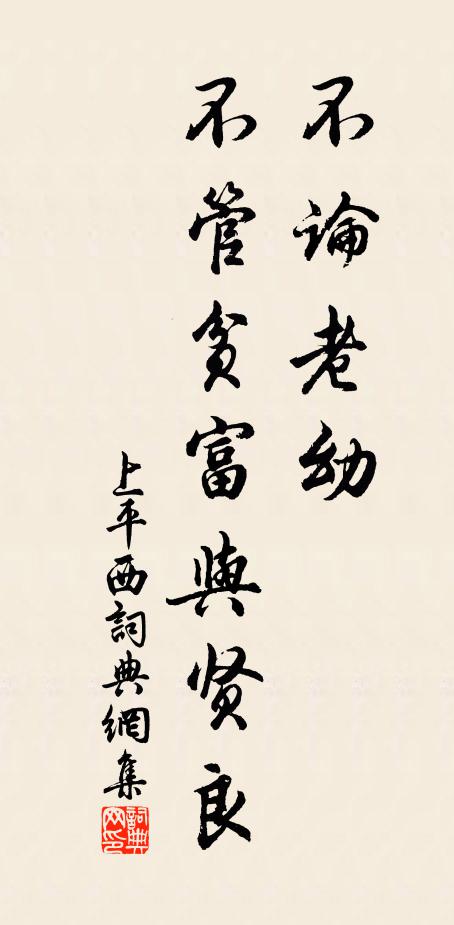 不論老幼
不管貧富與贤良
上平西詞典網集
詞典网印